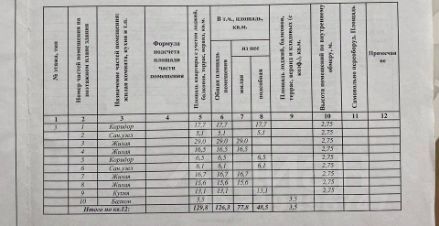 № этажа, эт.
Номер частей помещения на поэтажном плане здания
Назначение частей помещения: жилая комната, кухня и т.п.
Формула подсчета площади части помещения
Площадь квартиры с учетом лоджий, балконов, террас, веранд, кв.м.
В т.ч., площадь, кв.м.
Общая площадь помещения
из нее
жилая
подсобная
Площадь лоджий, балконов, террас, веранд
Высота помещений по внутреннему обмеру, м.
Самовольно переоборуд. Площадь
Примечание
1 2 3 4 5 6 7 8 9 10 11 12
3 1 Коридор 17,7 17,7 17,7 2,75
2 Сан.узел 5,1 5,1 5,1 2,75
3 Жилая 29,0 29,0 29,0 2,75
4 Жилая 16,5 16,5 16,5 2,75
5 Коридор 6,5 6,5 6,5 2,75
6 Сан.узел 6,1 6,1 6,1 2,75
7 Жилая 16,7 16,7 16,7 2,75
8 Жилая 15,6 15,6 15,6 2,75
9 Кухня 13,1 13,1 13,1 2,75
10 Балкон 3,5 3,5
Итого по кв.12: 129,8 126,3 77,8 48,5 3,5